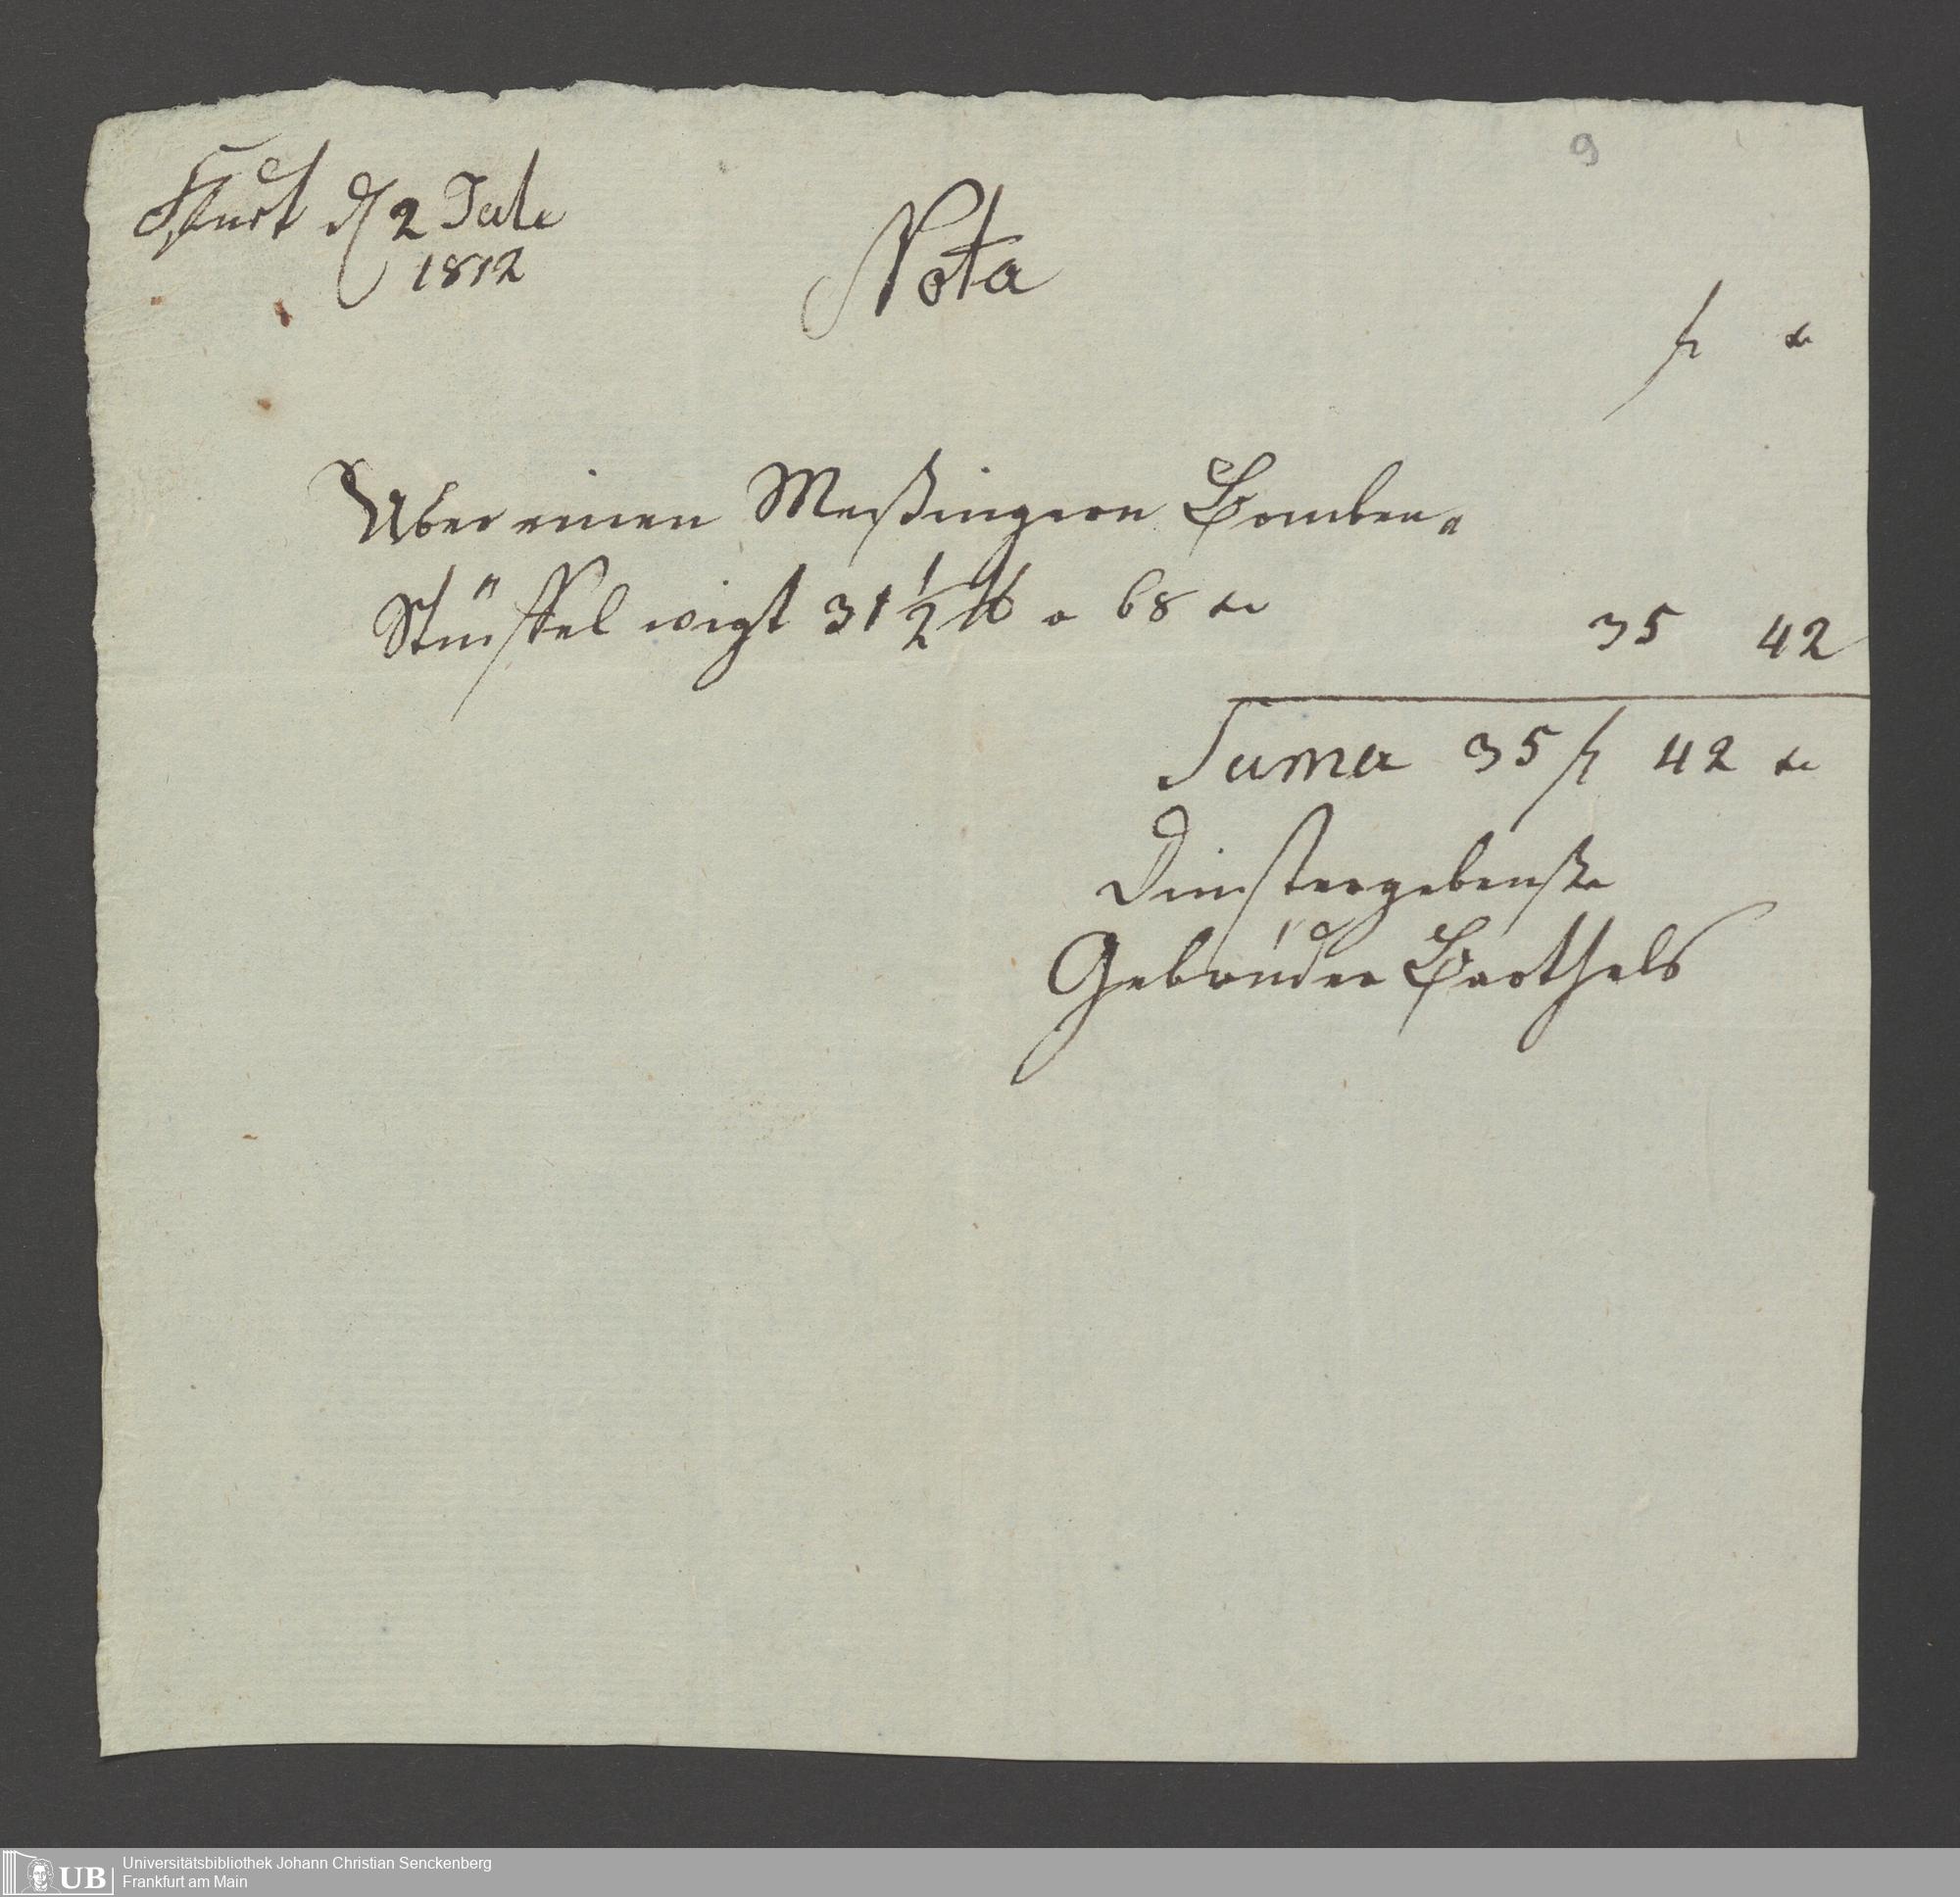 9
Ffurt d 2 Jule
1812
Nota
fl xr
Uber einen Meßingern Bomben„
Stüffel wigt 31 1/2 ℔ a 68 xr
35 42
Suma 35 fl 42 xr
Dinstergebenste
Gebrüder Barthels
UB Universitätsbibliothek Johann Christian Senckenberg
Frankfurt am Main